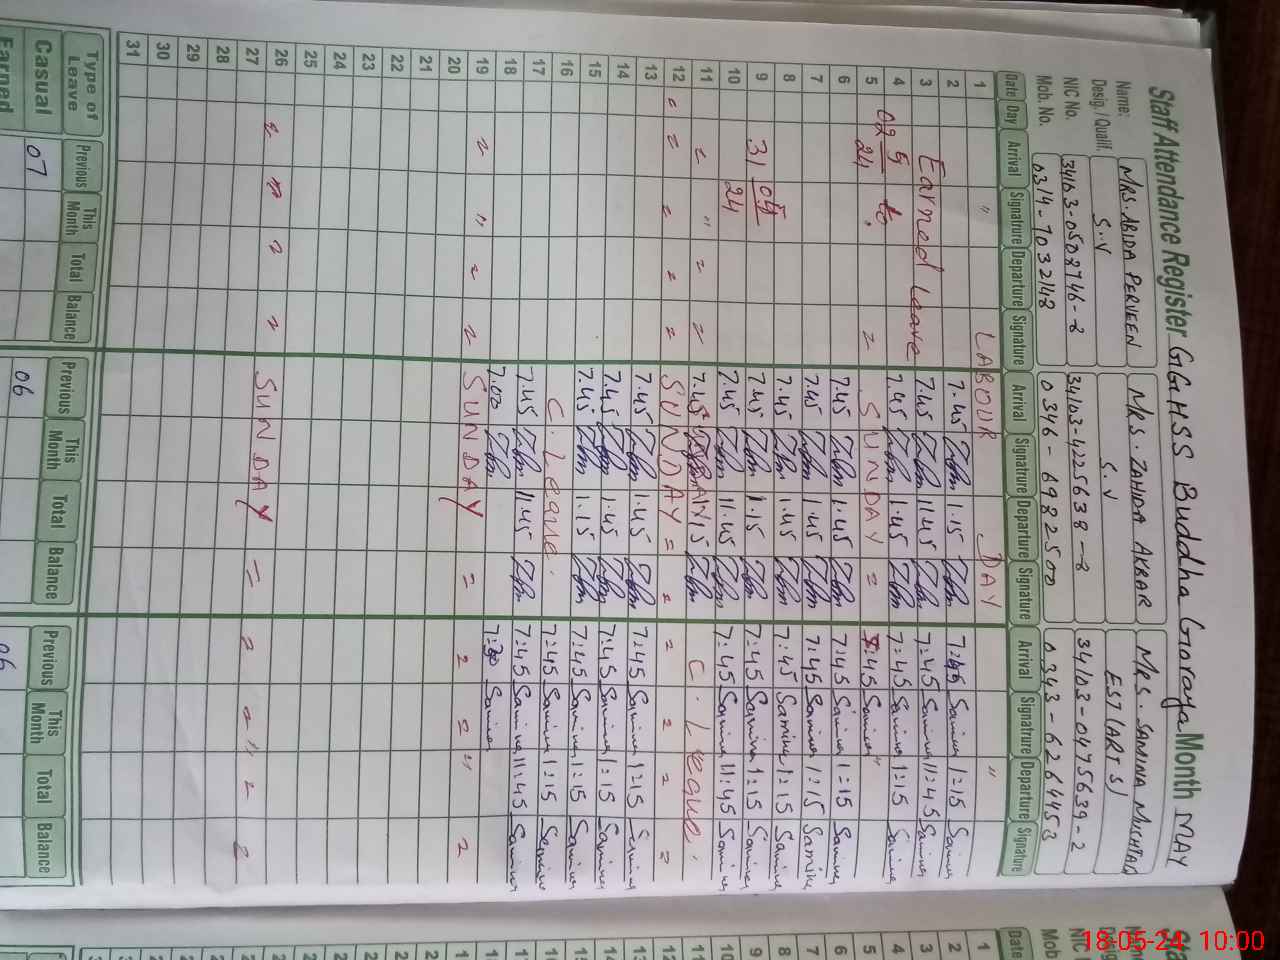 Staff Attendance Register GGHSS Buddha Goraya Month MAY
Name: MRS. ABIDA PERVEEN MRS. ZAHIDA AKBAR MRS. SAMINA MUSHTAQ
Desig. / Qualif. S.V S.V EST (ARTS)
NIC No. 34103-0508746-8 34103-4225638-8 34103-0475639-2
Mob. No. 0314-7032148 0346-6982500 0343-6264453
Date Day Arrival Signatrure Departure Signature Arrival Signatrure Departure Signature Arrival Signatrure Departure Signature
1 " LABOUR DAY "
2 7.45 1.15 Samina 1:15 Samina
3 Earned Leave 7.45 11.45 7:45 Samina 11:45 Samina
4 02 5 24 to 7.45 1.45 7:45 Samina 1:15 Samina
5 = SUNDAY = :45 Samina "
6 7.45 1.45 7:45 Samina 1:15 Samina
7 7.45 1.45 7:45 Samina 1:15 Samina
8 7.45 1.45 7:45 Samina 1:15 Samina
9 31 05 24 7.45 1.15 7:45 Samina 1:15 Samina
10 7.45 11.45 7:45 Samina 11:45 Samina
11 = " = = 7.45 C. Leave.
12 = = = = = SUNDAY = = = = = =
13 7.45 1.45 7:45 Samina 1:15 Samina
14 7.45 1.45 7:45 Samina 1:15 Samina
15 7.45 1.15 7:45 Samina 1:15 Samina
16 C. Leave. 7:45 Samina 1:15 Samina
17 7.45 11.45 7:45 Samina 11:45 Samina
18 7.00 Samina
19 = " = = SUNDAY = = = " =
20
21
22
23
24
25
26 = = = = SUNDAY = = = " = =
27
28
29
30
31
Type of Leave Previous This Month Total Balance Previous This Month Total Balance Previous This Month Total Balance
Casual 07 06 06
Earned
Date
Mob
NIC
1
2
3
4
5
6
7
8
9
10
11
12
13
14
15
16
17
18
18-05-24 10:00